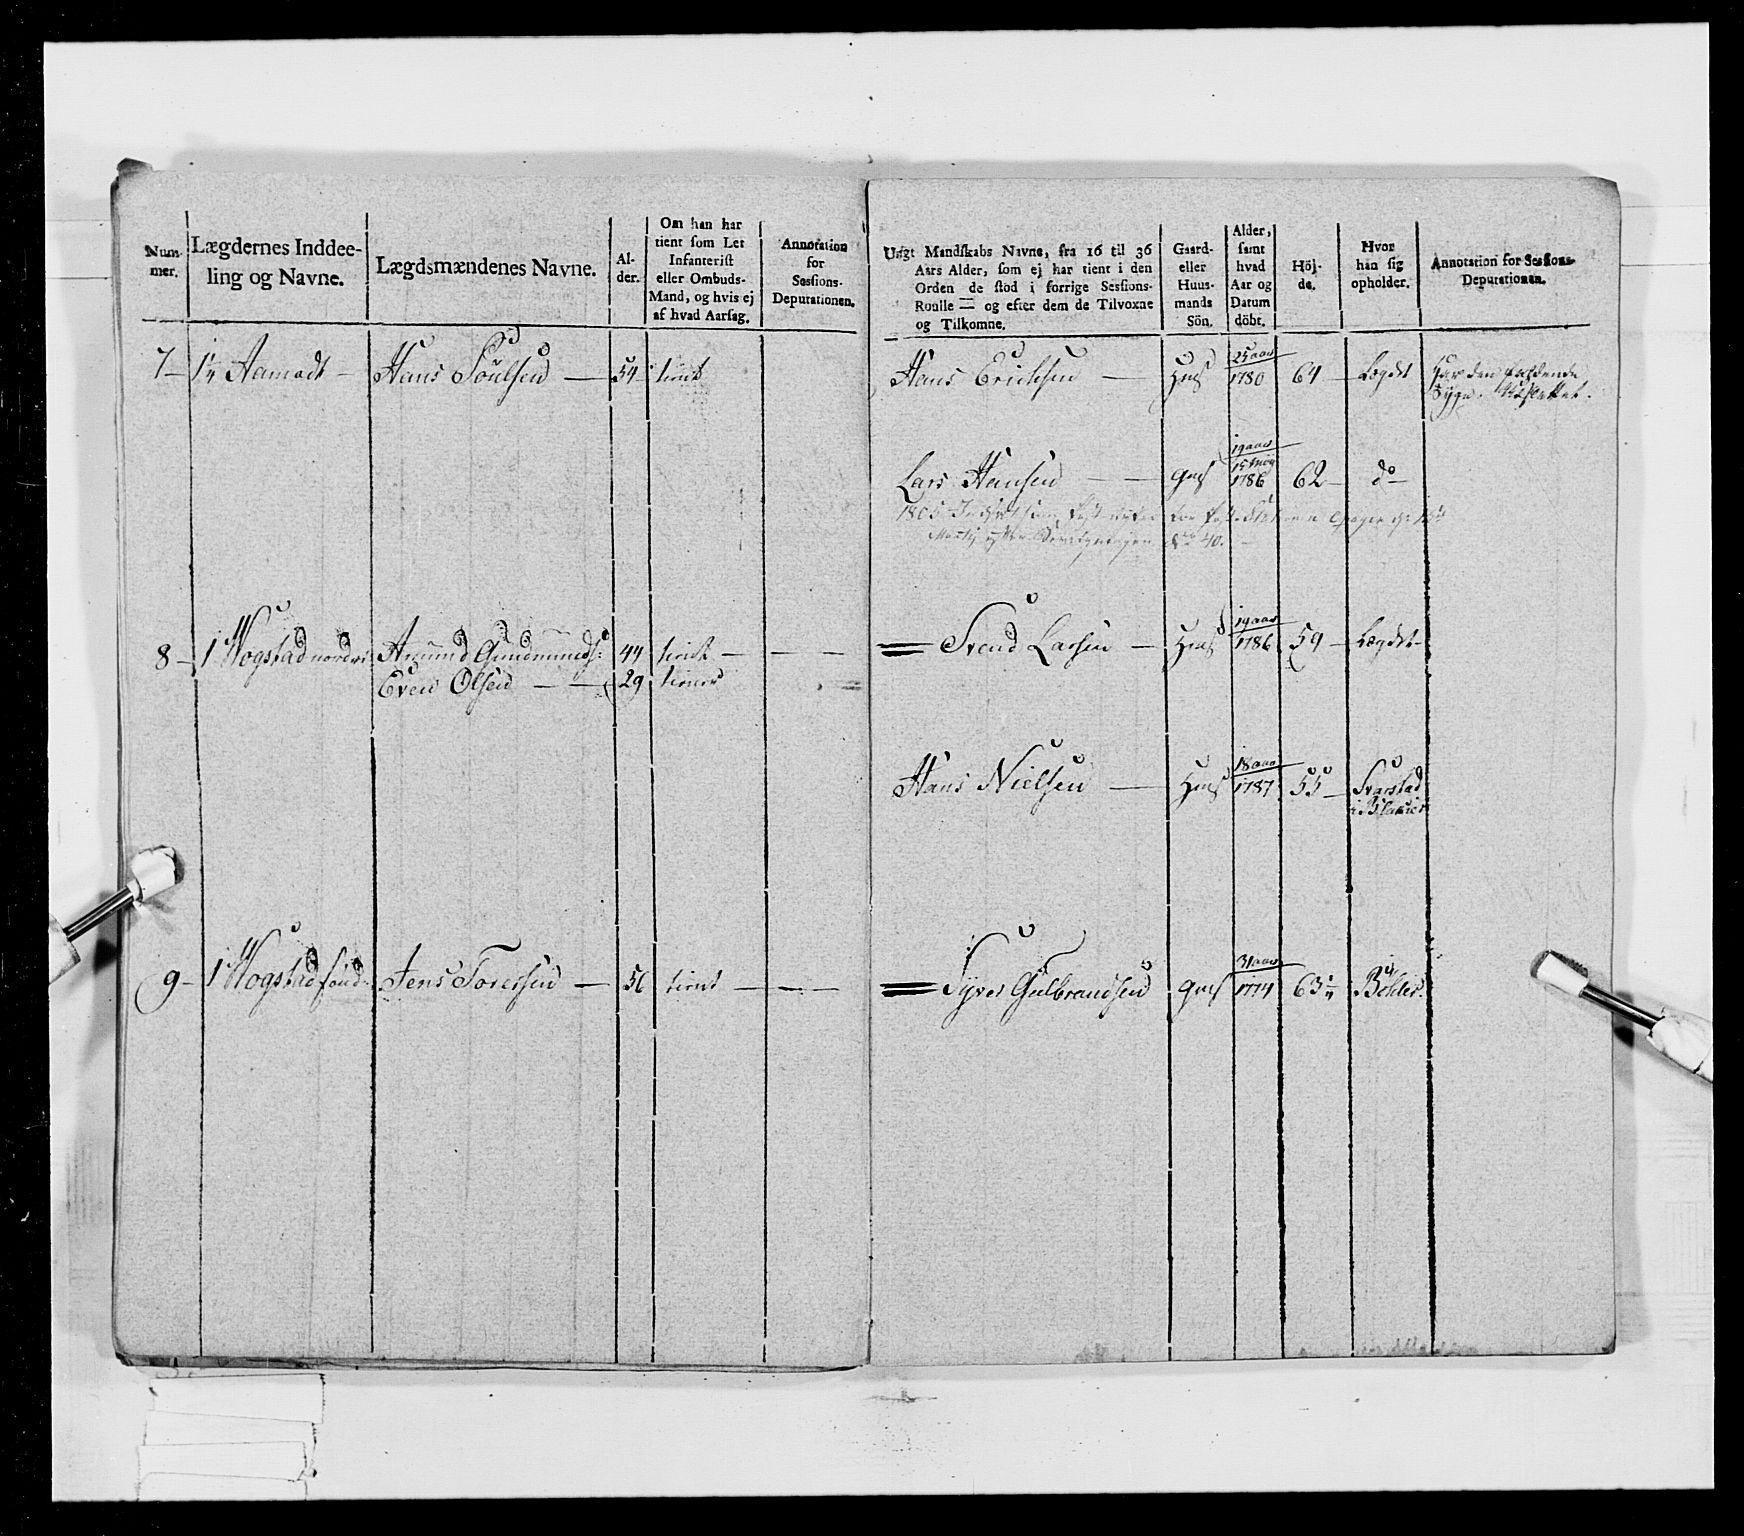 Num-
mer.
Lægdernes Inddee-
ling og Navne.
Lægdsmændenes Navne.
Al-
der.
Om han har
tient som Let
Infanterist
eller Ombuds-
Mand, og hvis ej
af hvad Aarsag.
Annotation
for
Sessions-
Deputationen.
7 - Aamodt - Hans Poulsen - 54 tient
8 - 1 Wogstad nordre Amund Gudmunds: 44 tient - - -
Even Olsen - - 29 tiener
9 - 1 Wogstad sønd: Jens Toresen - 56 tient - - -
Ungt Mandskabs Navne, fra 16 til 36
Aars Alder, som ej har tient i den
Orden de stod i forrige Sessions-
Roulle = og efter dem de Tilvoxne
og Tilkomne.
Gaard-
eller
Huus-
mands
Sön.
Alder,
samt
hvad
Aar og
Datum
döbt.
Höj-
de.
Hvor
han sig
opholder.
Annotation for Sessions-
Deputationen.
25 aar
Hans Ericksen - Hms 1780 64 - Lægdet har den faldende
Syge. Udslettet.
19 aar
15 May
Lars Hansen - - Gms 1786 62 - do -
1805
No 40.
19 aar
= Svend Larsen - Hms 1786 59 - Lægdet -
18 aar
Hans Nielsen - Hms 1787 55 - Svarstad
i Blakier
31 aar
= Syver Gulbrandsen Gms 1774 63 Böhler